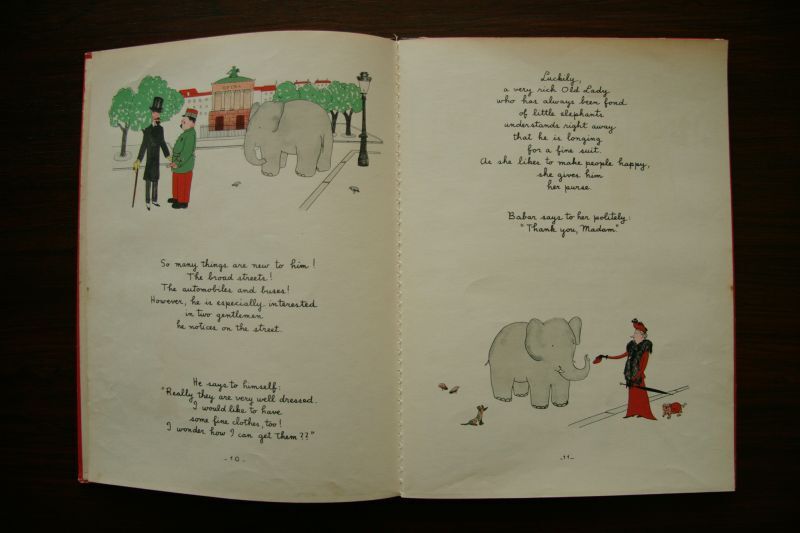 OPERA
So many things are new to him!
The broad streets!
The automobiles and buses!
However, he is especially interested
in two gentlemen
he notices on the street.
He says to himself:
"Really they are very well dressed.
I would like to have
some fine clothes, too!
I wonder how I can get them??"
-10-
Luckily,
a very rich Old Lady
who has always been fond
of little elephants
understands right away
that he is longing
for a fine suit.
As she likes to make people happy,
she gives him
her purse.
Babar says to her politely:
"Thank you, Madam."
-11-